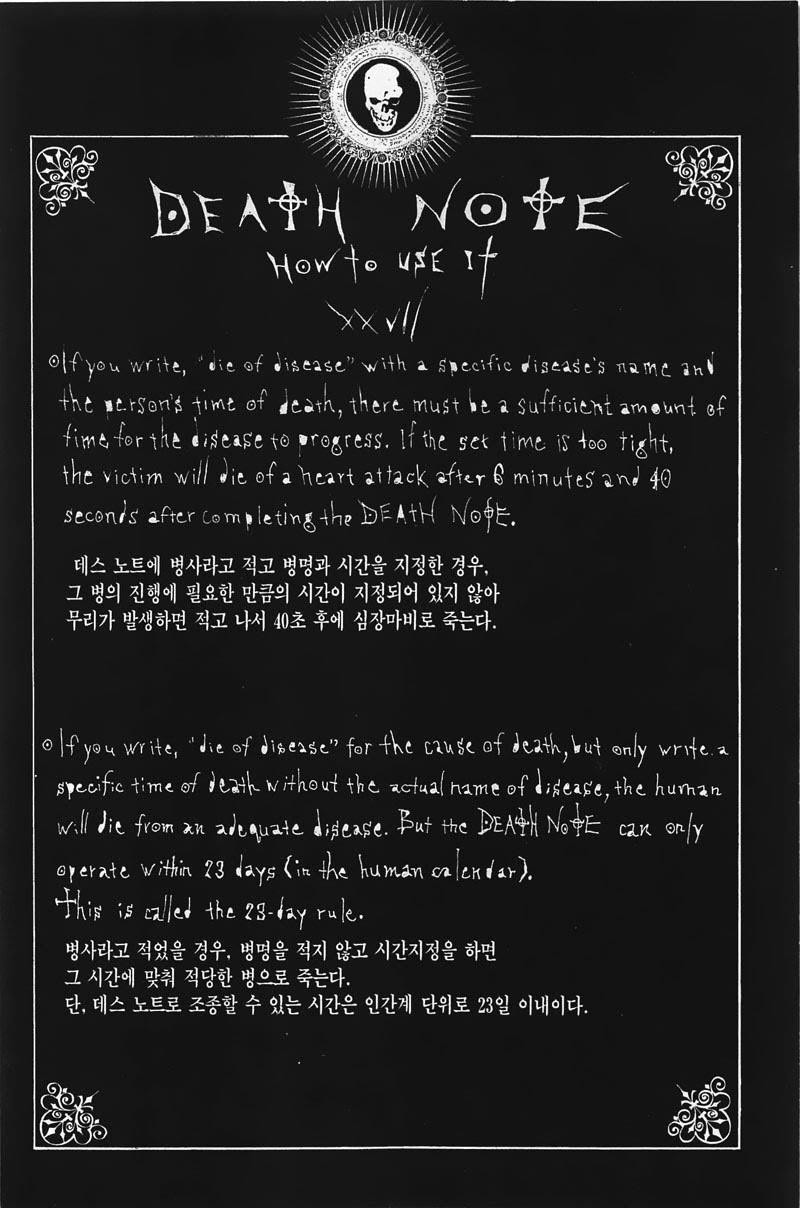 DEATH NOTE
HOW to USE IT
XXVII
If you write, "die of disease" with a specific disease's name and
the person's time of death, there must be a sufficient amount of
time for the disease to progress. If the set time is too tight,
the victim will die of a heart attack after 6 minutes and 40
seconds after completing the DEATH NOTE.
데스 노트에 병사라고 적고 병명과 시간을 지정한 경우,
그 병의 진행에 필요한 만큼의 시간이 지정되어 있지 않아
무리가 발생하면 적고 나서 40초 후에 심장마비로 죽는다.
If you write, "die of disease" for the cause of death, but only write a
specific time of death without the actual name of disease, the human
will die from an adequate disease. But the DEATH NOTE can only
operate within 23 days (in the human calendar).
This is called the 23-day rule.
병사라고 적었을 경우, 병명을 적지 않고 시간지정을 하면
그 시간에 맞춰 적당한 병으로 죽는다.
단, 데스 노트로 조종할 수 있는 시간은 인간계 단위로 23일 이내이다.